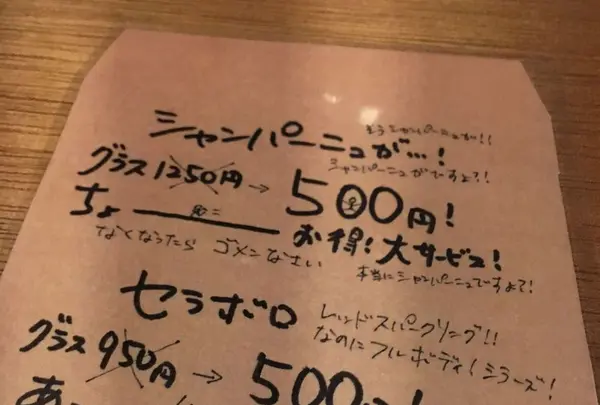 シャンパーニュが…!
そうシャンパーニュが!!
シャンパーニュがですよ?!
グラス 1250円 → 500円!
ちょ
お得! 大サービス!
なくなったら ゴメンなさい
本当にシャンパーニュですよ?!
セラボロ
レッドスパークリング!!
なのにフルボディ!シラーズ!
グラス 950円 → 500